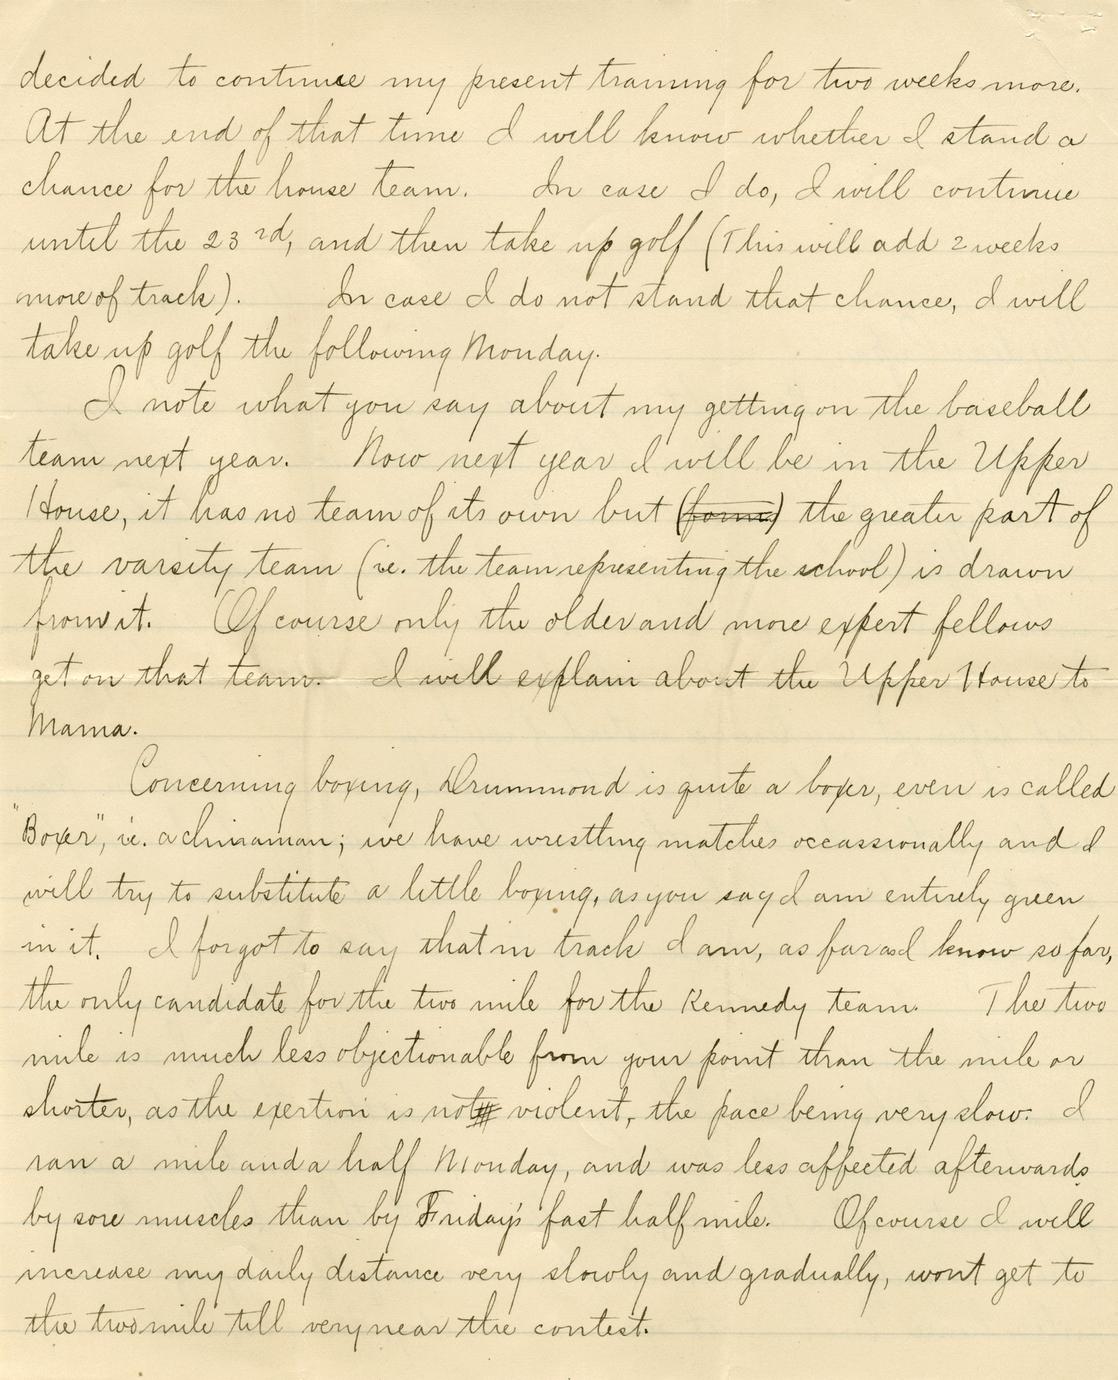 decided to continue my present training for two weeks more.
At the end of that time I will know whether I stand a
chance for the house team. In case I do, I will continue
until the 23rd, and then take up golf (This will add 2 weeks
more of track). In case I do not stand that chance, I will
take up golf the following Monday.
I note what you say about my getting on the baseball
team next year. Now next year I will be in the Upper
House, it has no team of its own but (forms) the greater part of
the varsity team (ie. the team representing the school) is drawn
from it. Of course only the older and more expert fellows
get on that team. I will explain about the Upper House to
Mama.
Concerning boxing, Drummond is quite a boxer, even is called
"Boxer", ie. a chinaman; we have wrestling matches occassionally and I
will try to substitute a little boxing, as you say I am entirely green
in it. I forgot to say that in track I am, as far as I know so far,
the only candidate for the two mile for the Kennedy team. The two
mile is much less objectionable from your point than the mile or
shorter, as the exertion is not violent, the pace being very slow. I
ran a mile and a half Monday, and was less affected afterwards
by sore muscles than by Friday's fast half mile. Of course I will
increase my daily distance very slowly and gradually, wont get to
the two mile till very near the contest.